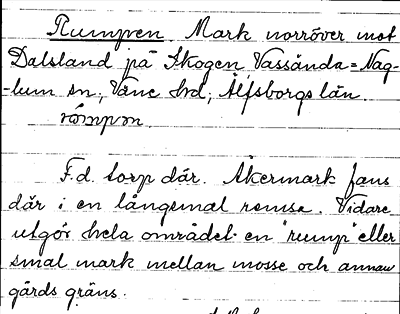 Rumpen. Mark norröver mot
Dalsland på Skogen Vassända=Nag-
-lum sn, Väne hd, Älfsborgs län.
römpən.
F.d. torp där. Åkermark fans
där i en långsmal remsa. Vidare
utgör hela området en "rump" eller
smal mark mellan mosse och annan
gårds gräns.